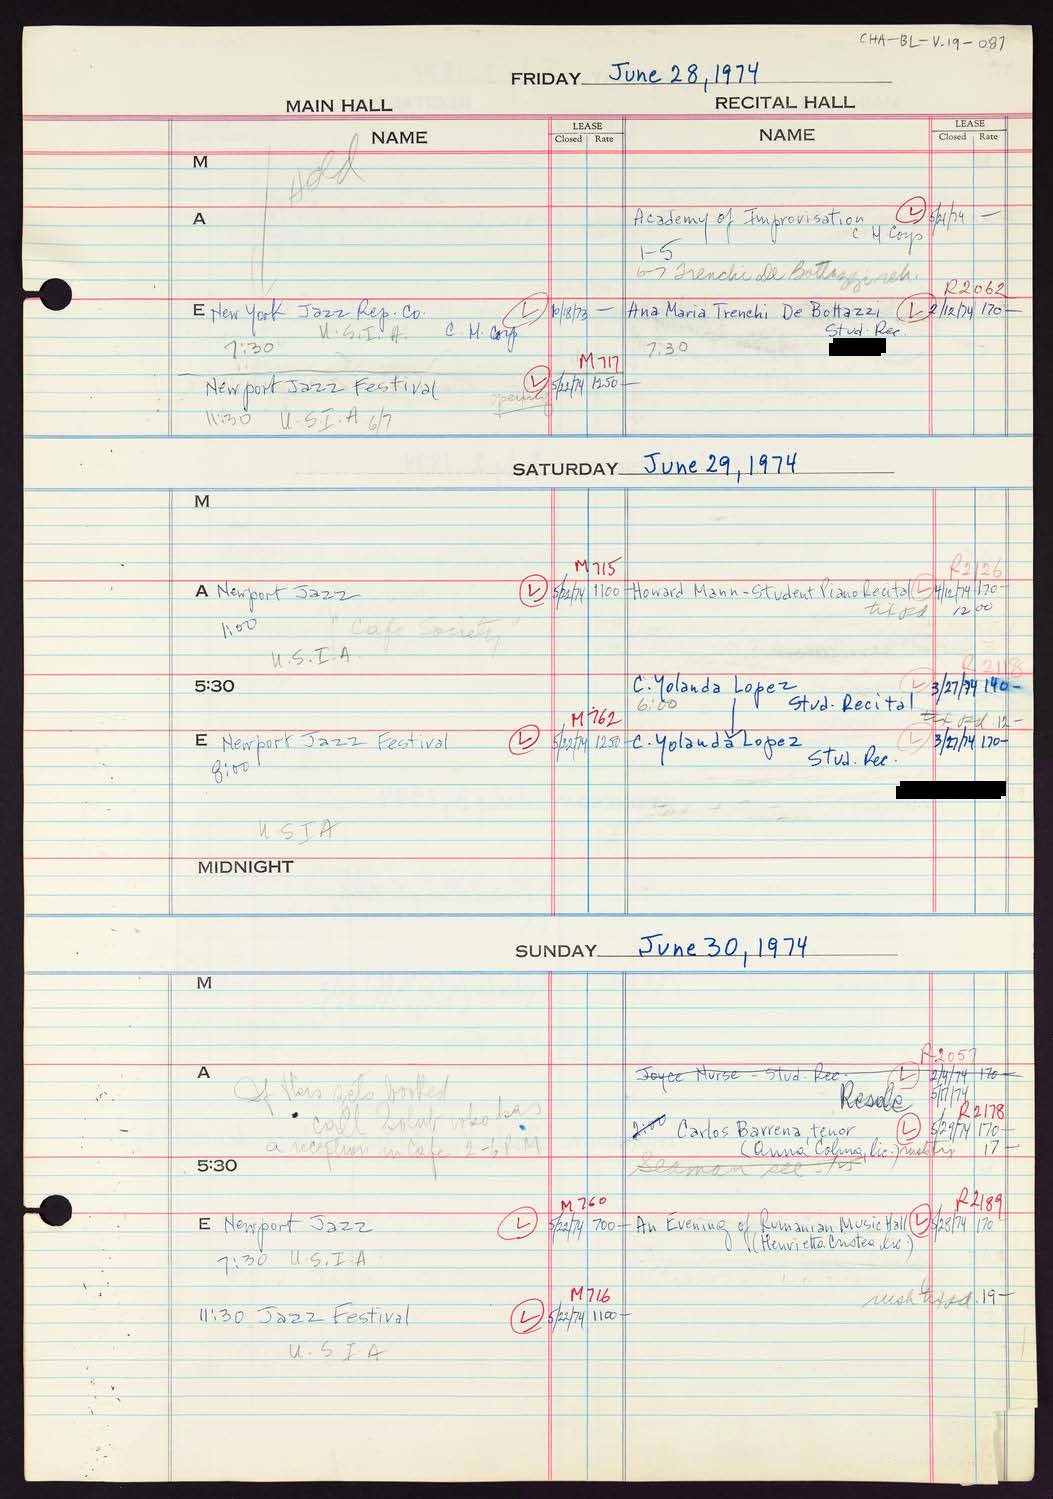 CHA-BL-V.19-087
FRIDAY June 28, 1974
MAIN HALL RECITAL HALL
NAME LEASE Closed Rate NAME LEASE Closed Rate
M Hold
A Academy of Improvisation L 5/21/74 —
C M Corp
1-5
6-7 Trenchi De Bottazzi reh.
R2062
E New York Jazz Rep. Co. L 10/18/73 — Ana Maria Trenchi De Bottazzi L 2/12/74 170—
U.S.I.A. C M. Corp Stud. Rec.
7:30 7:30
M717
Newport Jazz Festival L 5/22/74 1250—
11:30 U.S.I.A 6/7
SATURDAY June 29, 1974
M
M715 R2126
A Newport Jazz L 5/22/74 1100— Howard Mann-Student Piano Recital L 4/12/74 170—
1:00 "Cafe Society" tix pd. 12 00
U.S.I.A.
R2118
5:30 C. Yolanda Lopez L 3/27/74 140—
6:00 Stud. Recital
M762 tix pd 12—
E Newport Jazz Festival L 5/22/74 1250— C. Yolanda Lopez L 3/27/74 170—
8:00 Stud. Rec.
USIA
MIDNIGHT
SUNDAY June 30, 1974
M
R2057
A Joyce Nurse - Stud. Rec. L 2/9/74 170—
If this gets booked Resale 5/17/74
call Solub who has R2178
2:00 Carlos Barrena, tenor L 5/29/74 170—
a reception in Cafe 2-6 P.M (Anna Colma, lic.) 17—
5:30 Seaman see
M760 R2189
E Newport Jazz L 5/22/74 700— An Evening of Rumanian Music Hall L 5/28/74 170
7:30 U.S.I.A (Henrietta Cristea, lic.)
M716 rush tix pd. 19—
11:30 Jazz Festival L 5/22/74 1100—
U.S.I.A